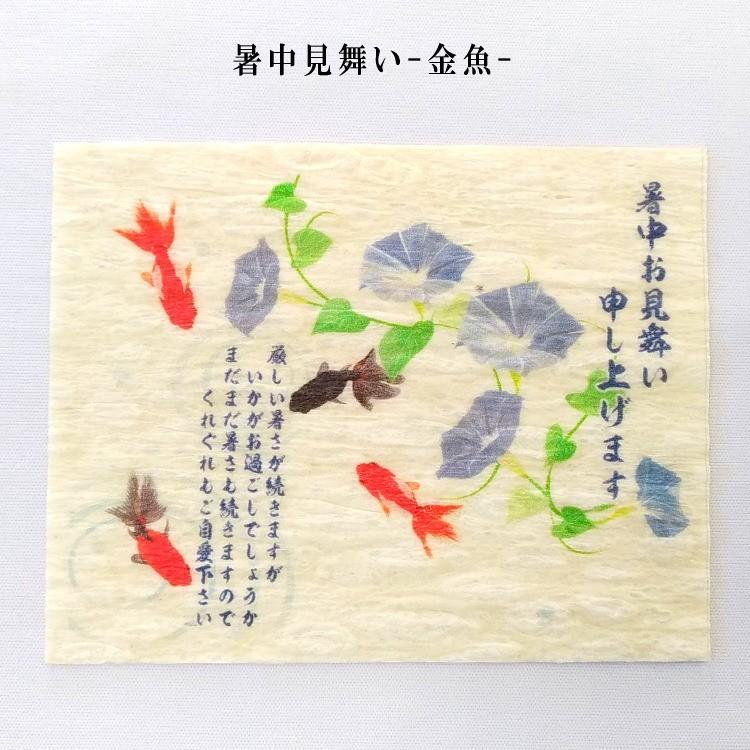 暑中見舞い-金魚-
暑中お見舞い
申し上げます
厳しい暑さが続きますが
いかがお過ごしでしょうか
まだまだ暑さも続きますので
くれぐれもご自愛下さい